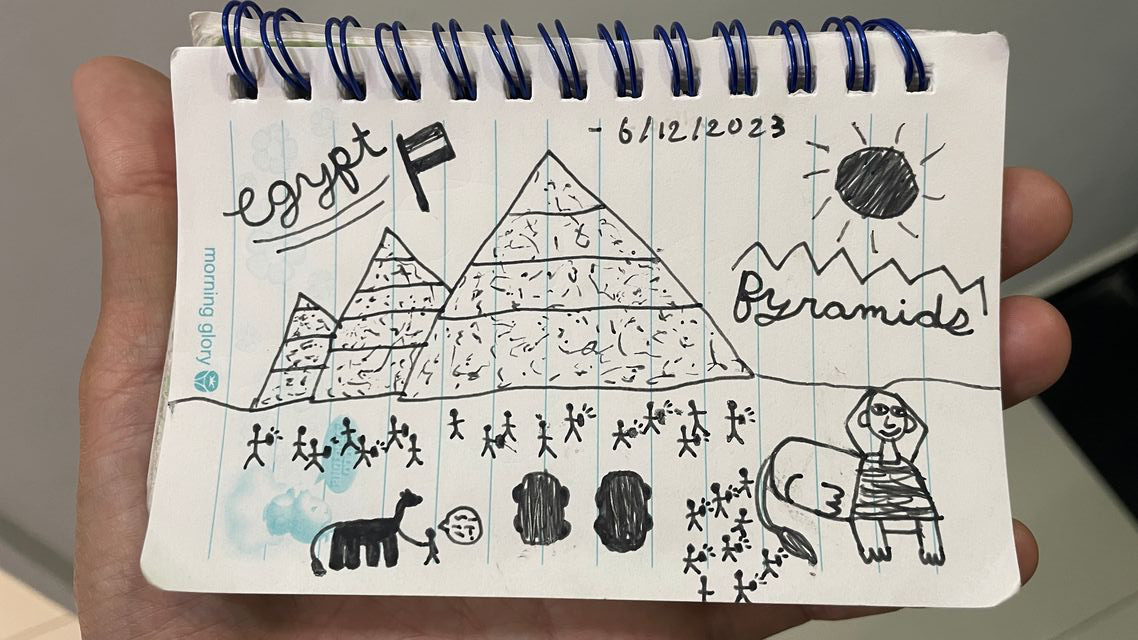 - 6/12/2023
egypt
Pyramids
morning glory